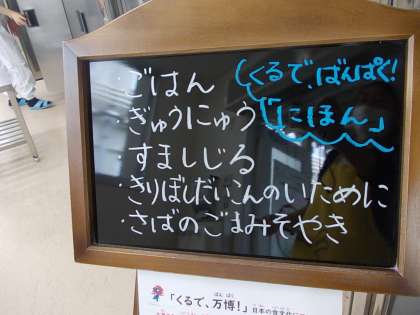 ・ごはん
・ぎゅうにゅう
・すましじる
・きりぼしだいこんのいために
・さばのごまみそやき
くるで、ばんぱく!
「にほん」
ばん ぱく
「くるで、万博!」日本の食文化に